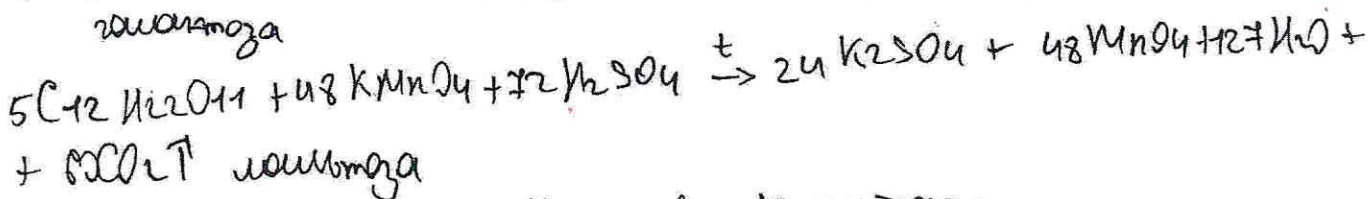 галактоза
5C12H22O11 + 48KMnO4 + 72H2SO4 t→ 24K2SO4 + 48MnO4 + 127H2O +
+ 60CO2↑ мальтоза